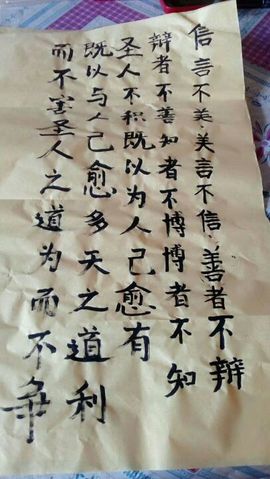 信言不美.美言不信.善者不辩
辩者不善知者不博博者不知
圣人不积既以为人己愈有
既以与人己愈多天之道利
而不害圣人之道为而不争